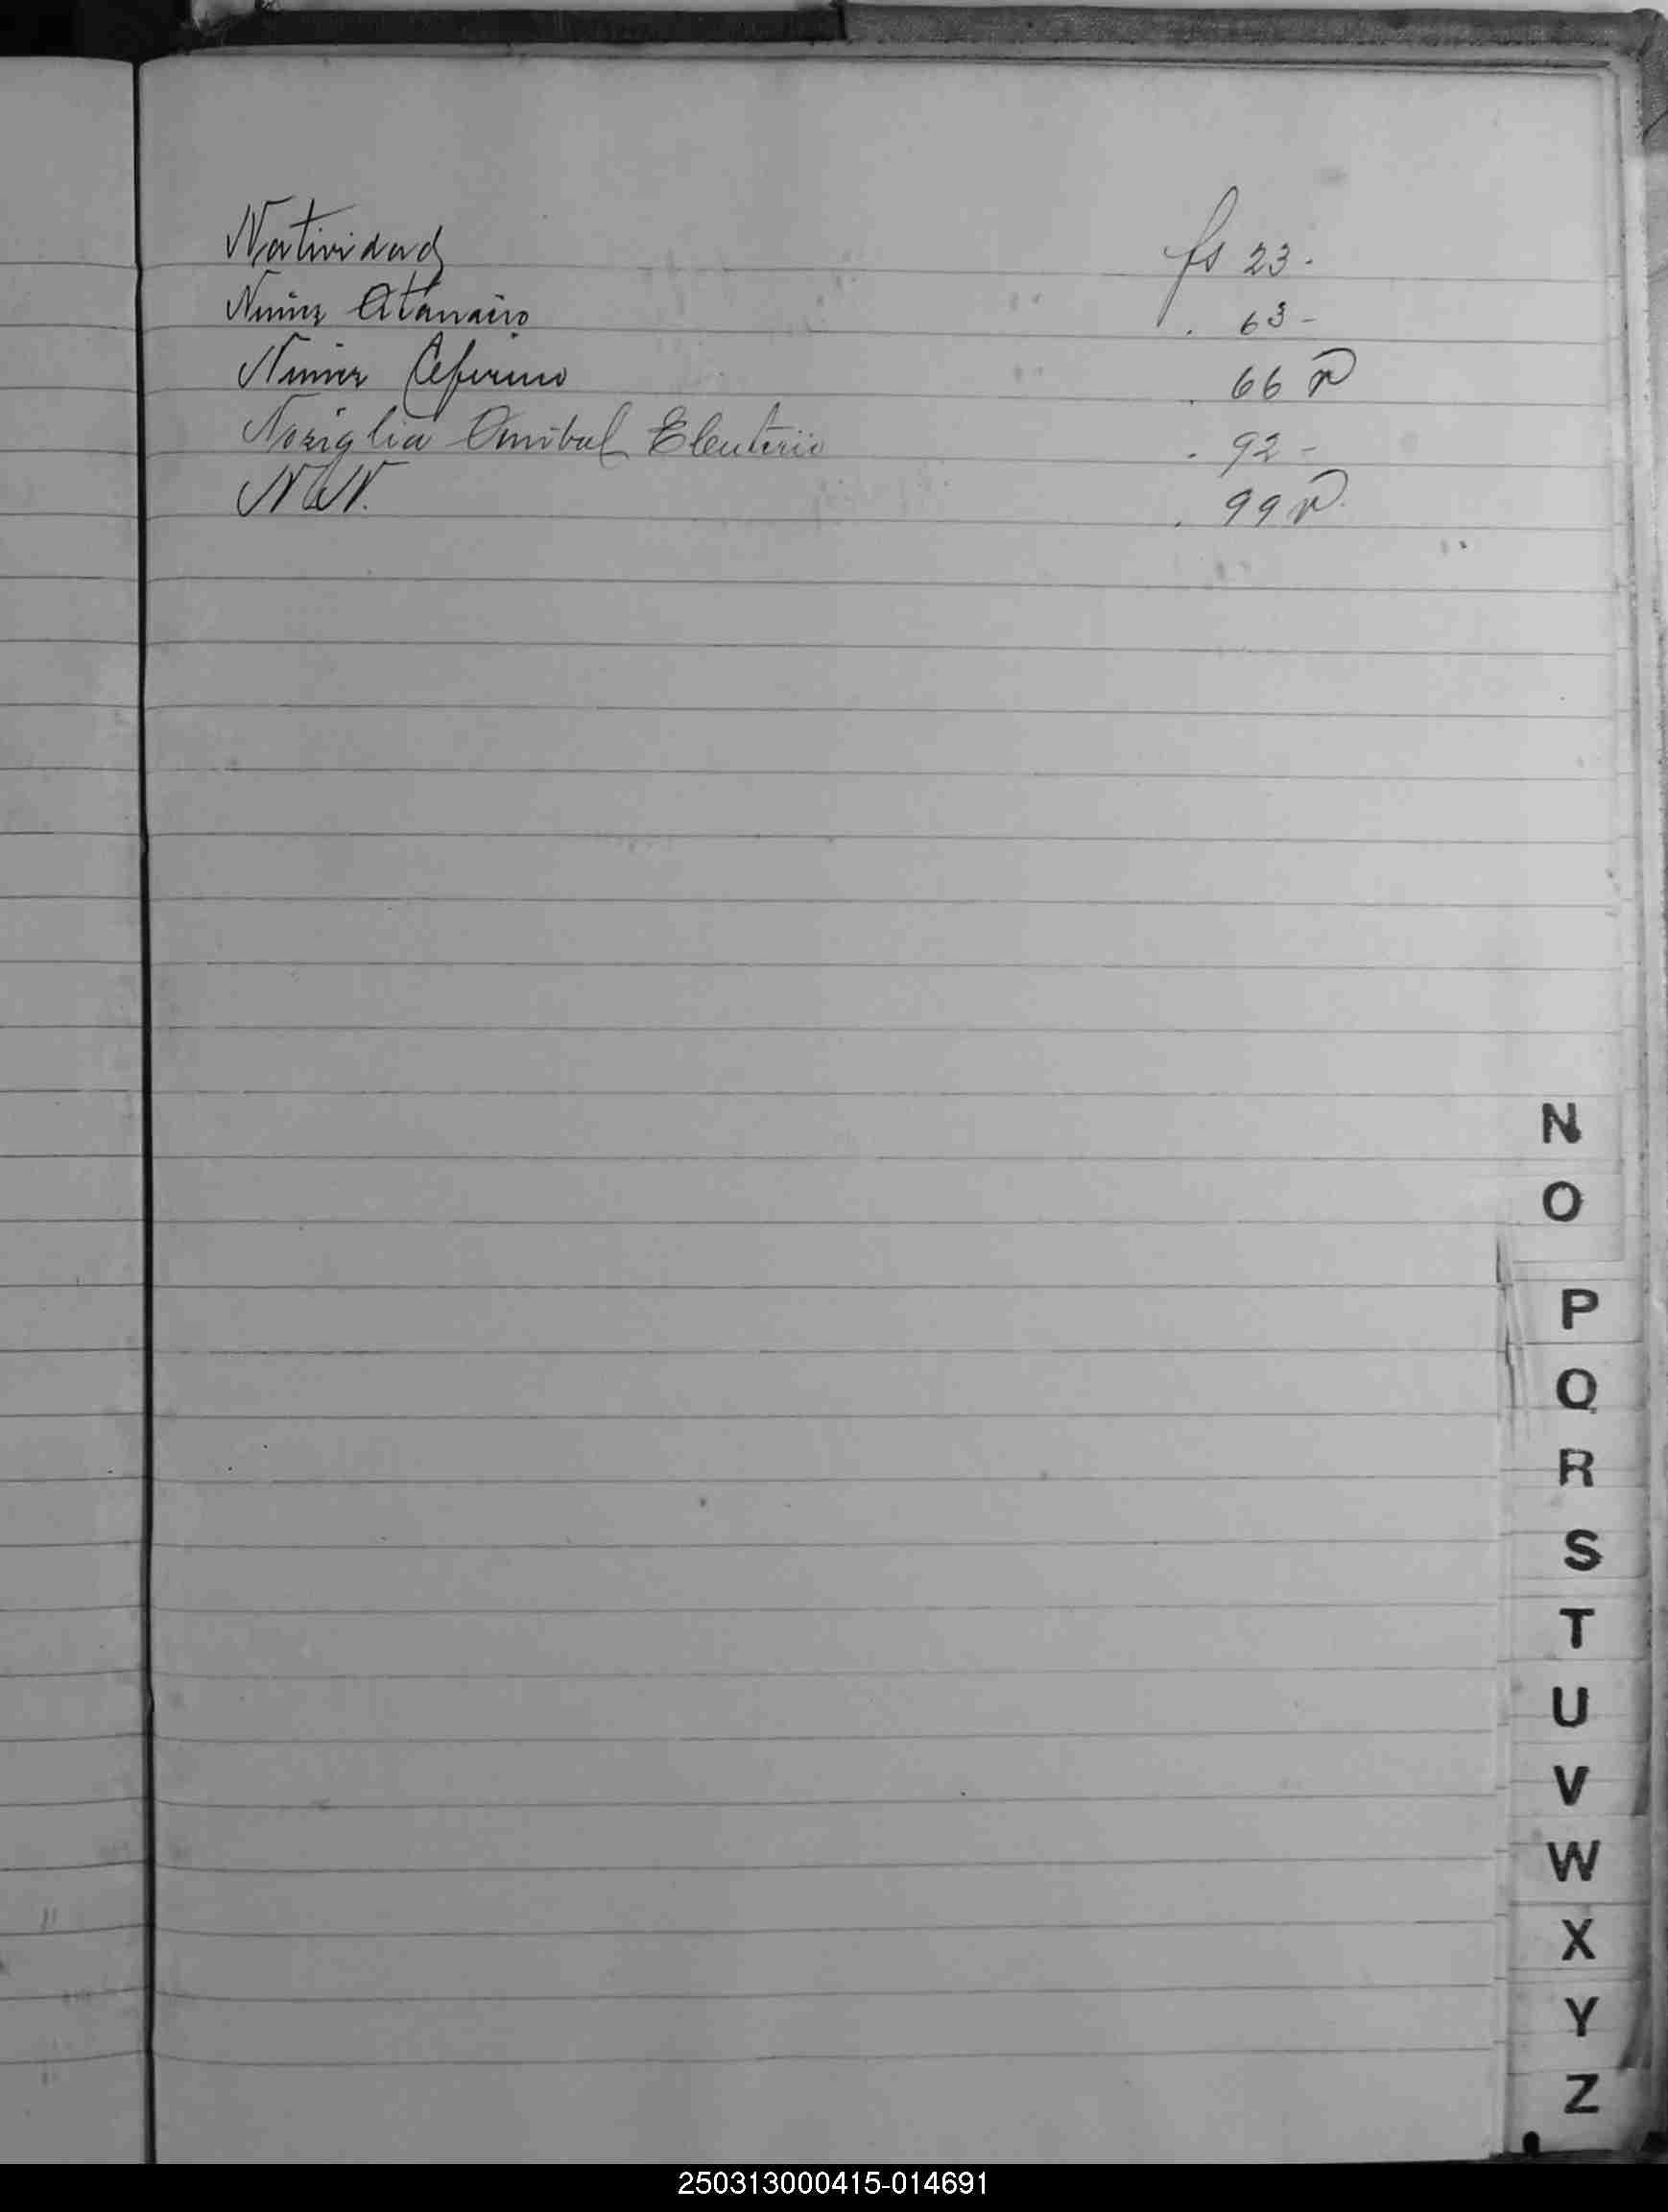 Natividad fs 23.
Nuñez Atanacio . 63 -
Nuñez Ceferino . 66 v
Noziglia Anibal Eleuterio . 92 -
N N. . 99 v.
N
O
P
Q
R
S
T
U
V
W
X
Y
Z
250313000415-014691